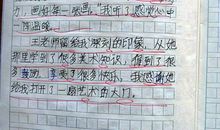 力，画每年一张画。"我听了感觉心中
很温暖。
王老师留给我深刻的印象，从她
那里学到了很多美术知识，得到了很
多，享受了很多快乐，我感谢她
给我打开了一扇艺术的大门。